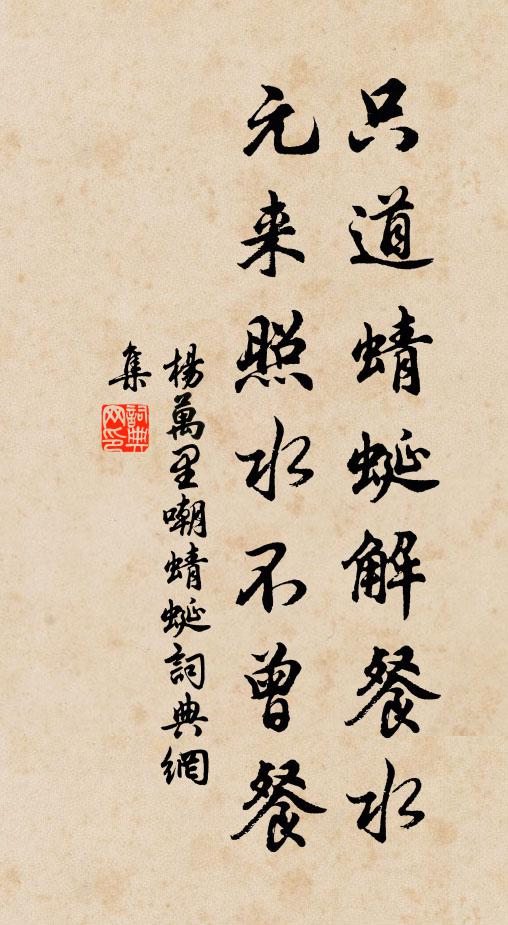 只道蜻蜓解餐水
元来照水不曾餐
楊萬里嘲蜻蜓詞典網
集
詞典
网印